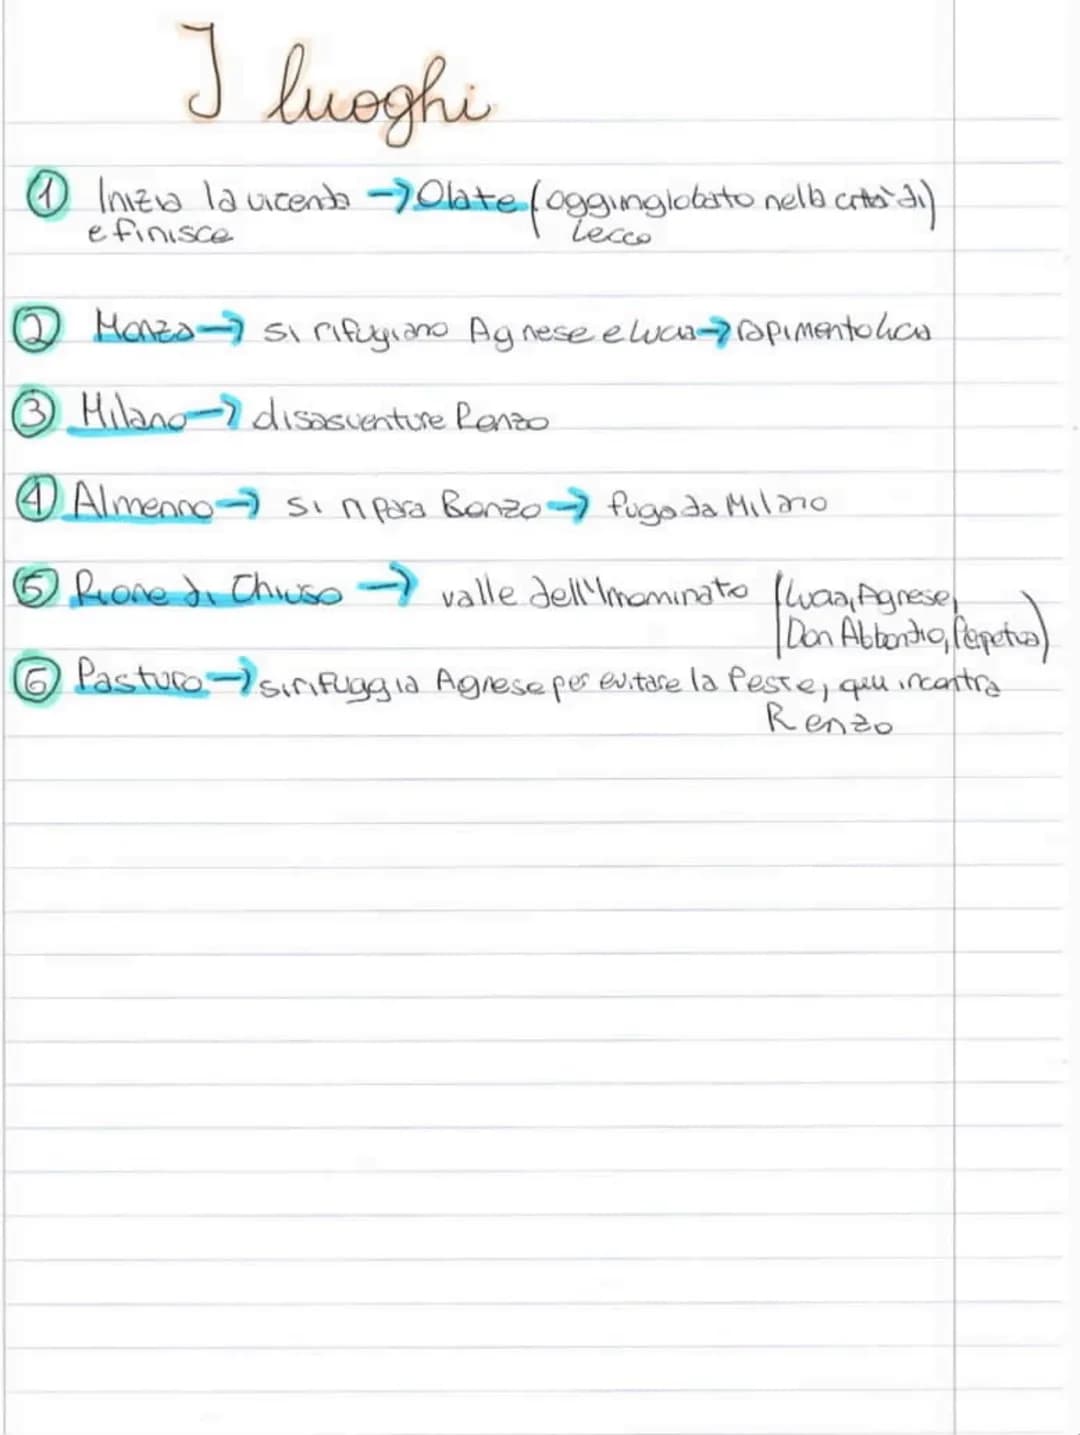 I luoghi
① Inizia la vicenda → Olate (oggi inglobato nella città di)
e finisce Lecco
② Monza → si rifugiano Agnese e Lucia → rapimento Lucia
③ Milano → disasventure Renzo
④ Almenno → si ripara Renzo → fuga da Milano
⑤ Rione di Chiuso → valle dell'Innominato (Lucia, Agnese,
Don Abbondio, Perpetua)
⑥ Pasturo → si rifuggia Agnese per evitare la Peste, qui incontra
Renzo